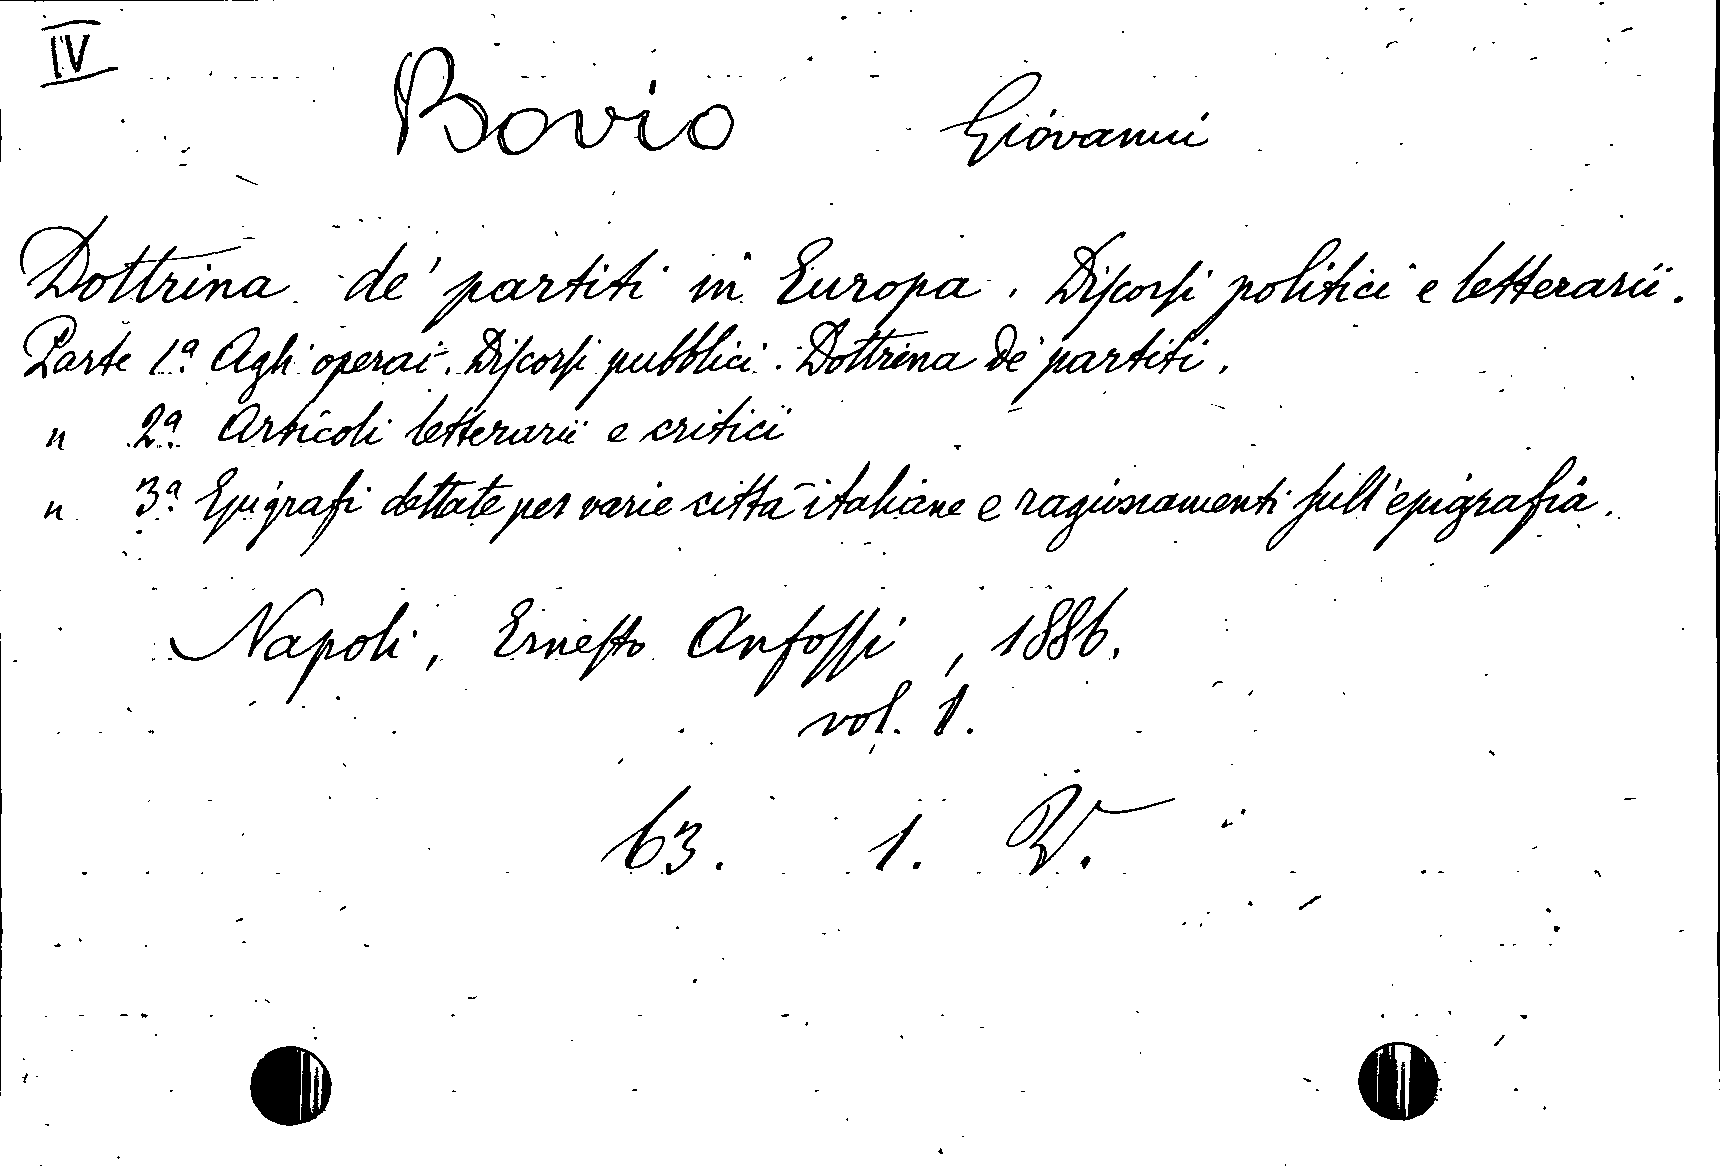 IV
Bovio Giovanni
Dottrina de' partiti in Europa. Diſcorſi politici e letterarii.
Parte 1ª Agli operai. Diſcorſi pubblici. Dottrina de' partiti.
" 2ª Articoli letterarii e critici
" 3ª Epigrafi dettate per varie città italiane e ragionamenti ſull'epigrafia.
Napoli, Erneſto Anfoſſi, 1886.
vol. 1.
63. 1. V.